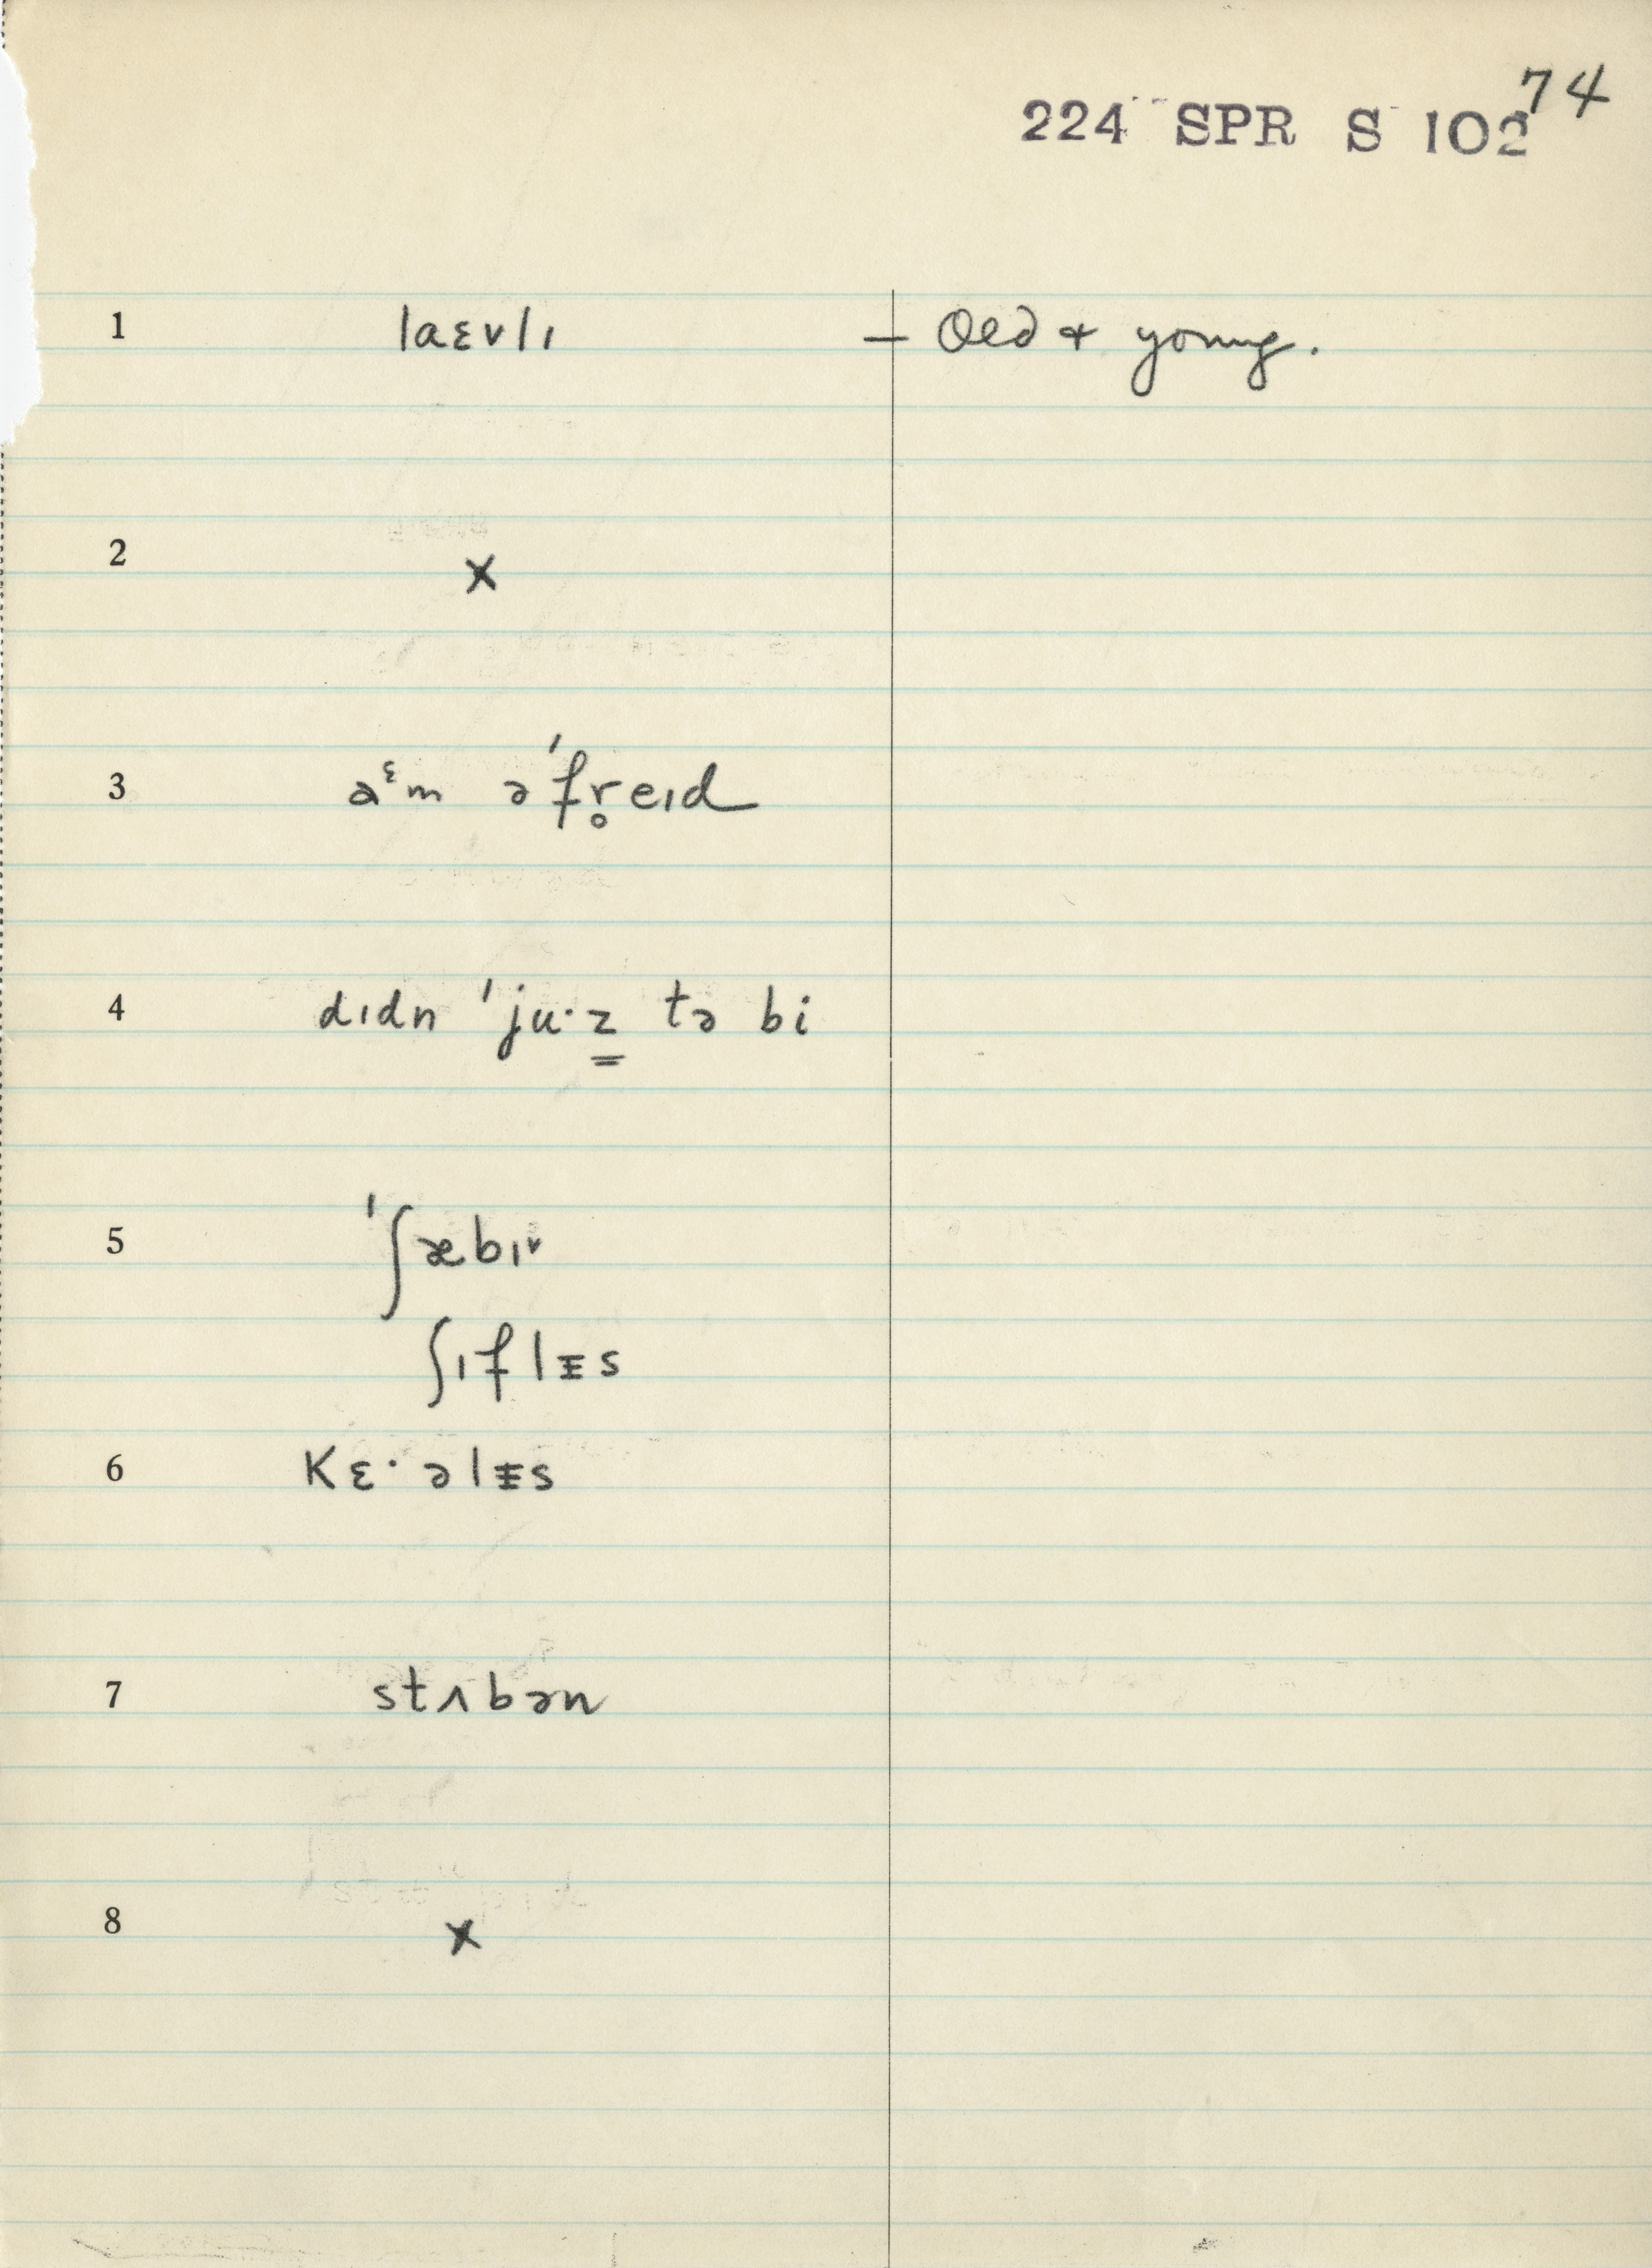 74
224 SPR S 102
1 laɛvlɪ — Old & young.
2 x
3 aᵋm ə'fr̥eɪd
4 dɪdn 'ju·z̳ tə bi
5 'ʃæbɪ˅
ʃɪflɪ̵s
6 Kɛ·əlɪ̵s
7 stʌbən
8 x